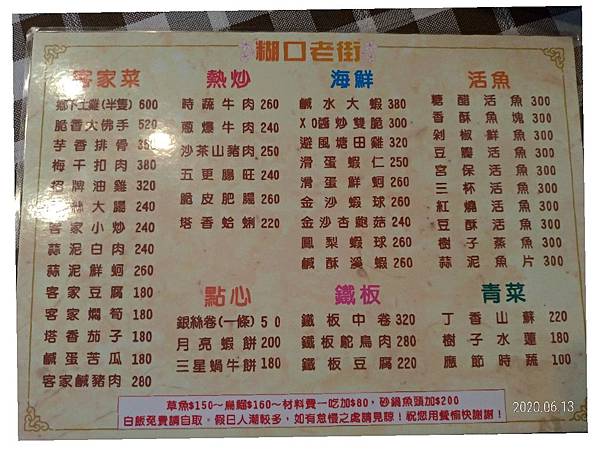 糊口老街
客家菜
鄉下土雞(半隻) 600
脆香大佛手 520
芋香排骨
梅干扣肉 380
招牌油雞 320
絲大腸 240
客家小炒 240
蒜泥白肉 240
蒜泥鮮蚵 260
客家豆腐 180
客家燜筍 180
塔香茄子 180
鹹蛋苦瓜 180
客家鹹豬肉 280
熱炒
時蔬牛肉 260
蔥爆牛肉 240
沙茶山豬肉 250
五更腸旺 240
脆皮肥腸 260
塔香蛤蜊 220
點心
銀絲卷(一條) 50
月亮蝦餅 200
三星蝸牛餅 180
海鮮
鹹水大蝦 380
XO醬炒雙脆 300
避風塘田雞 320
滑蛋蝦仁 250
滑蛋鮮蚵 260
金沙蝦球 260
金沙杏鮑菇 240
鳳梨蝦球 260
鹹酥溪蝦 260
鐵板
鐵板中卷 320
鐵板鴕鳥肉 280
鐵板豆腐 220
活魚
糖醋活魚 300
香酥魚塊 300
剁椒鮮魚 300
豆瓣活魚 300
宮保活魚 300
三杯活魚 300
紅燒活魚 300
豆酥活魚 300
樹子蒸魚 300
蒜泥魚片 300
青菜
丁香山蘇 220
樹子水蓮 180
應節時蔬 100
草魚$150～烏鰡$160～材料費一吃加$80，砂鍋魚頭加$200
白飯免費請自取。假日人潮較多，如有怠慢之處請見諒！祝您用餐愉快謝謝！
2020.06.13